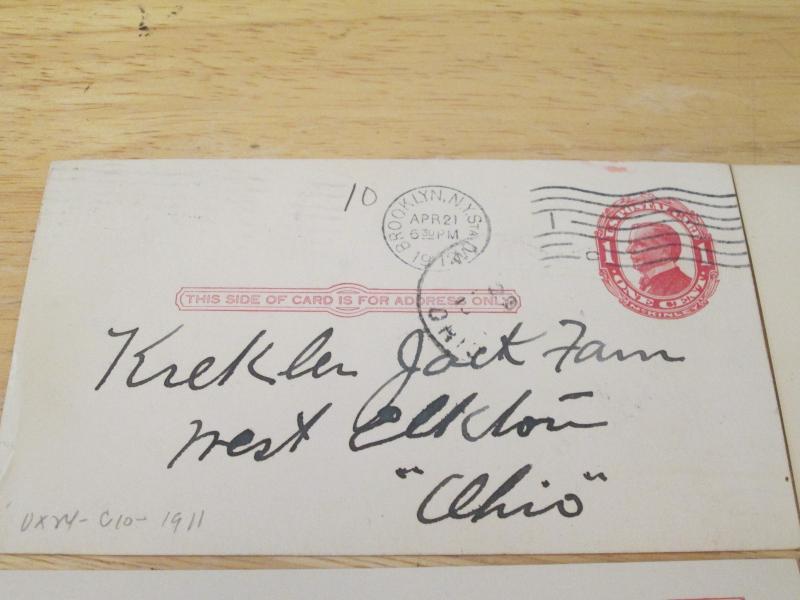 10
BROOKLYN, N.Y. STA.
APR 21
6 30 PM
U.S. POSTAL CARD
1 1
ONE CENT
McKINLEY
THIS SIDE OF CARD IS FOR ADDRESS ONLY
OHIO
Krekler Jack Farm
West Elkton
"Ohio"
UX24- C10- 1911